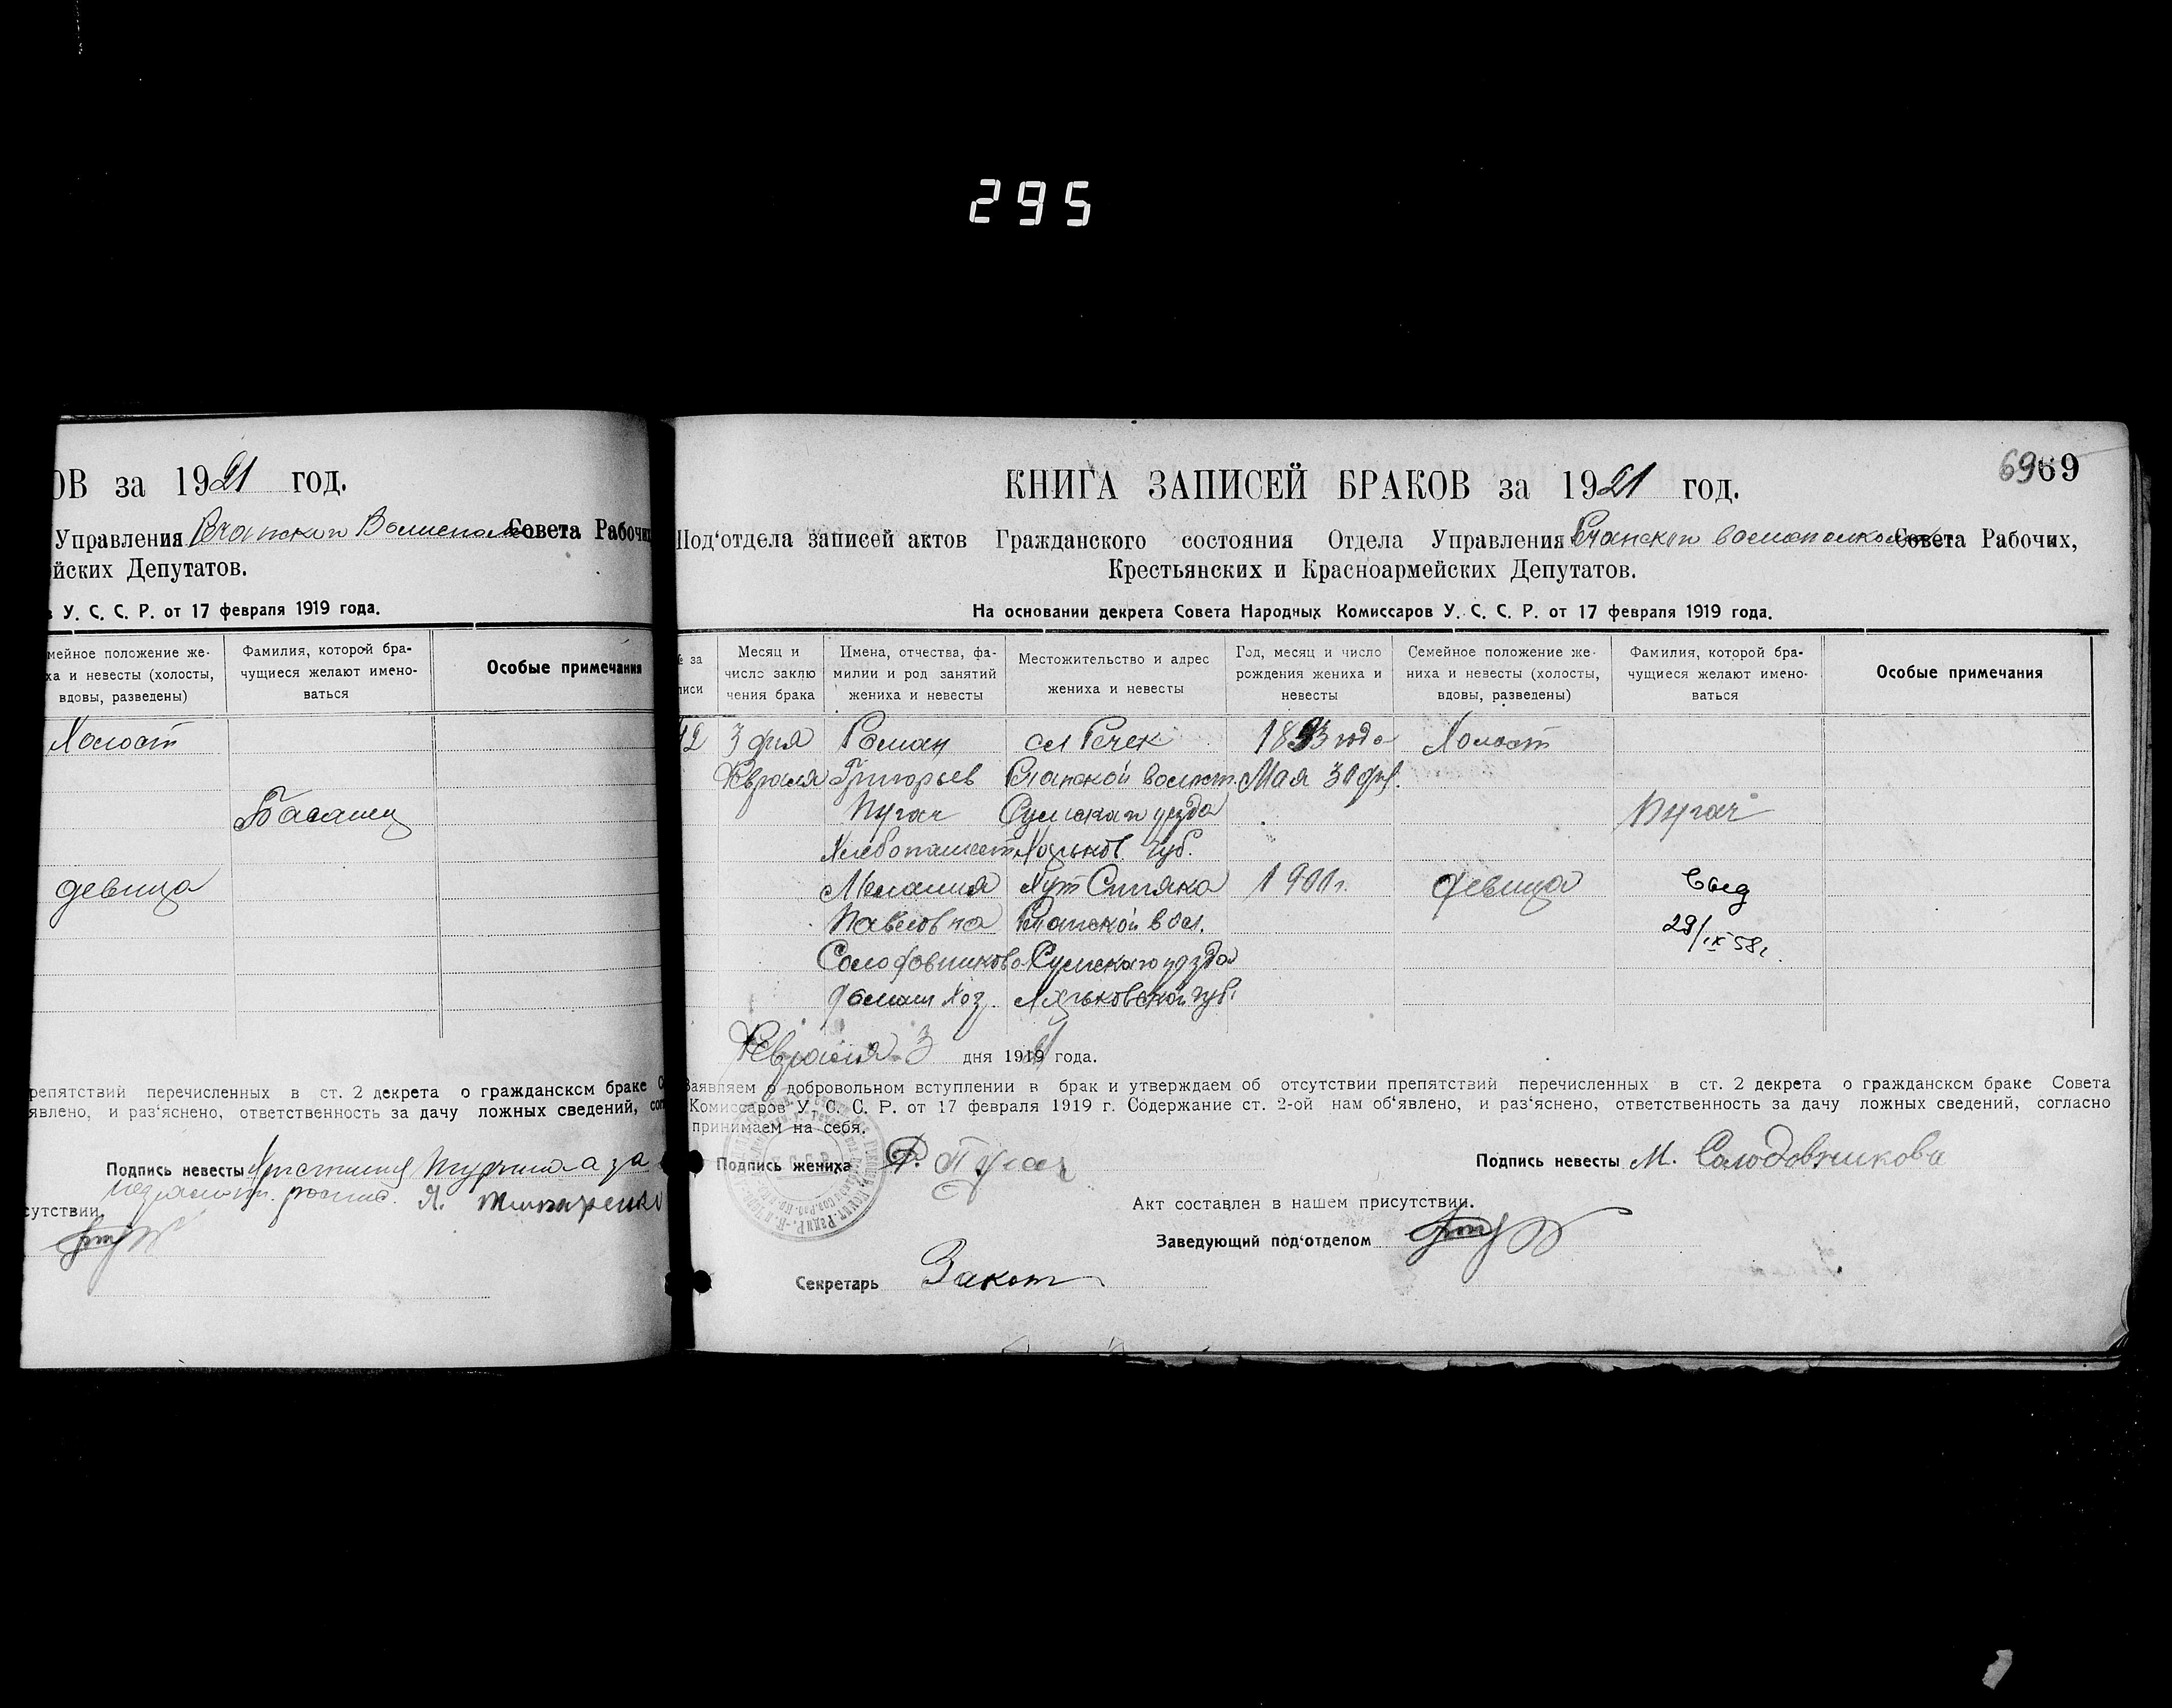 295
ОВ за 1921 год.
Управления Речанскаго Совета Рабочи
йских Депутатов.
У. С. С. Р. от 17 февраля 1919 года.
мейное положение же-
ха и невесты (холосты,
вдовы, разведены)
Фамилия, которой бра-
чущиеся желают имено-
ваться
Особые примечания
Холост
Басанец
девица
репятствий перечисленных в ст. 2 декрета о гражданском браке С
явлено, и раз'яснено, ответственность за дачу ложных сведений, сог
Подпись невесты Христина за
неграмотн. роспис. Я.
сутствии.
69 69
КНИГА ЗАПИСЕЙ БРАКОВ за 1921 год.
Под'отдела записей актов Гражданского состояния Отдела Управления Речанскаго Совета Рабочих,
Крестьянских и Красноармейских Депутатов.
На основании декрета Совета Народных Комиссаров У. С. С. Р. от 17 февраля 1919 года.
№ за
писи
Месяц и
число заклю
чения брака
Имена, отчества, фа-
милии и род занятий
жениха и невесты
Местожительство и адрес
жениха и невесты
Год, месяц и число
рождения жениха и
невесты
Семейное положение же-
ниха и невесты (холосты,
вдовы, разведены)
Фамилия, которой бра-
чущиеся желают имено-
ваться
Особые примечания
42 3 дня Роман сл Речек 1893 года Холост
Февраля Григорьев Речанской волост. Мая 30 дня.
Пугач Сумскаго уезда Пугач
Хлебопашест Харьков. губ.
Мелания Хут Спияка 1900г. девица
Павловна Речанской вол.
Солодовникова Сумскаго уезда
домаш хоз. Харьковской губ.
29/IX 58г.
Февраля 3 дня 1921 года.
Заявляем о добровольном вступлении в брак и утверждаем об отсутствии препятствий перечисленных в ст. 2 декрета о гражданском браке Совета
Комиссаров У. С. С. Р. от 17 февраля 1919 г. Содержание ст. 2-ой нам об'явлено, и раз'яснено, ответственность за дачу ложных сведений, согласно
принимаем на себя.
Подпись жениха Р. Пугач
Подпись невесты М. Солодовникова
Акт составлен в нашем присутствии.
Заведующий под'отделом
Секретарь